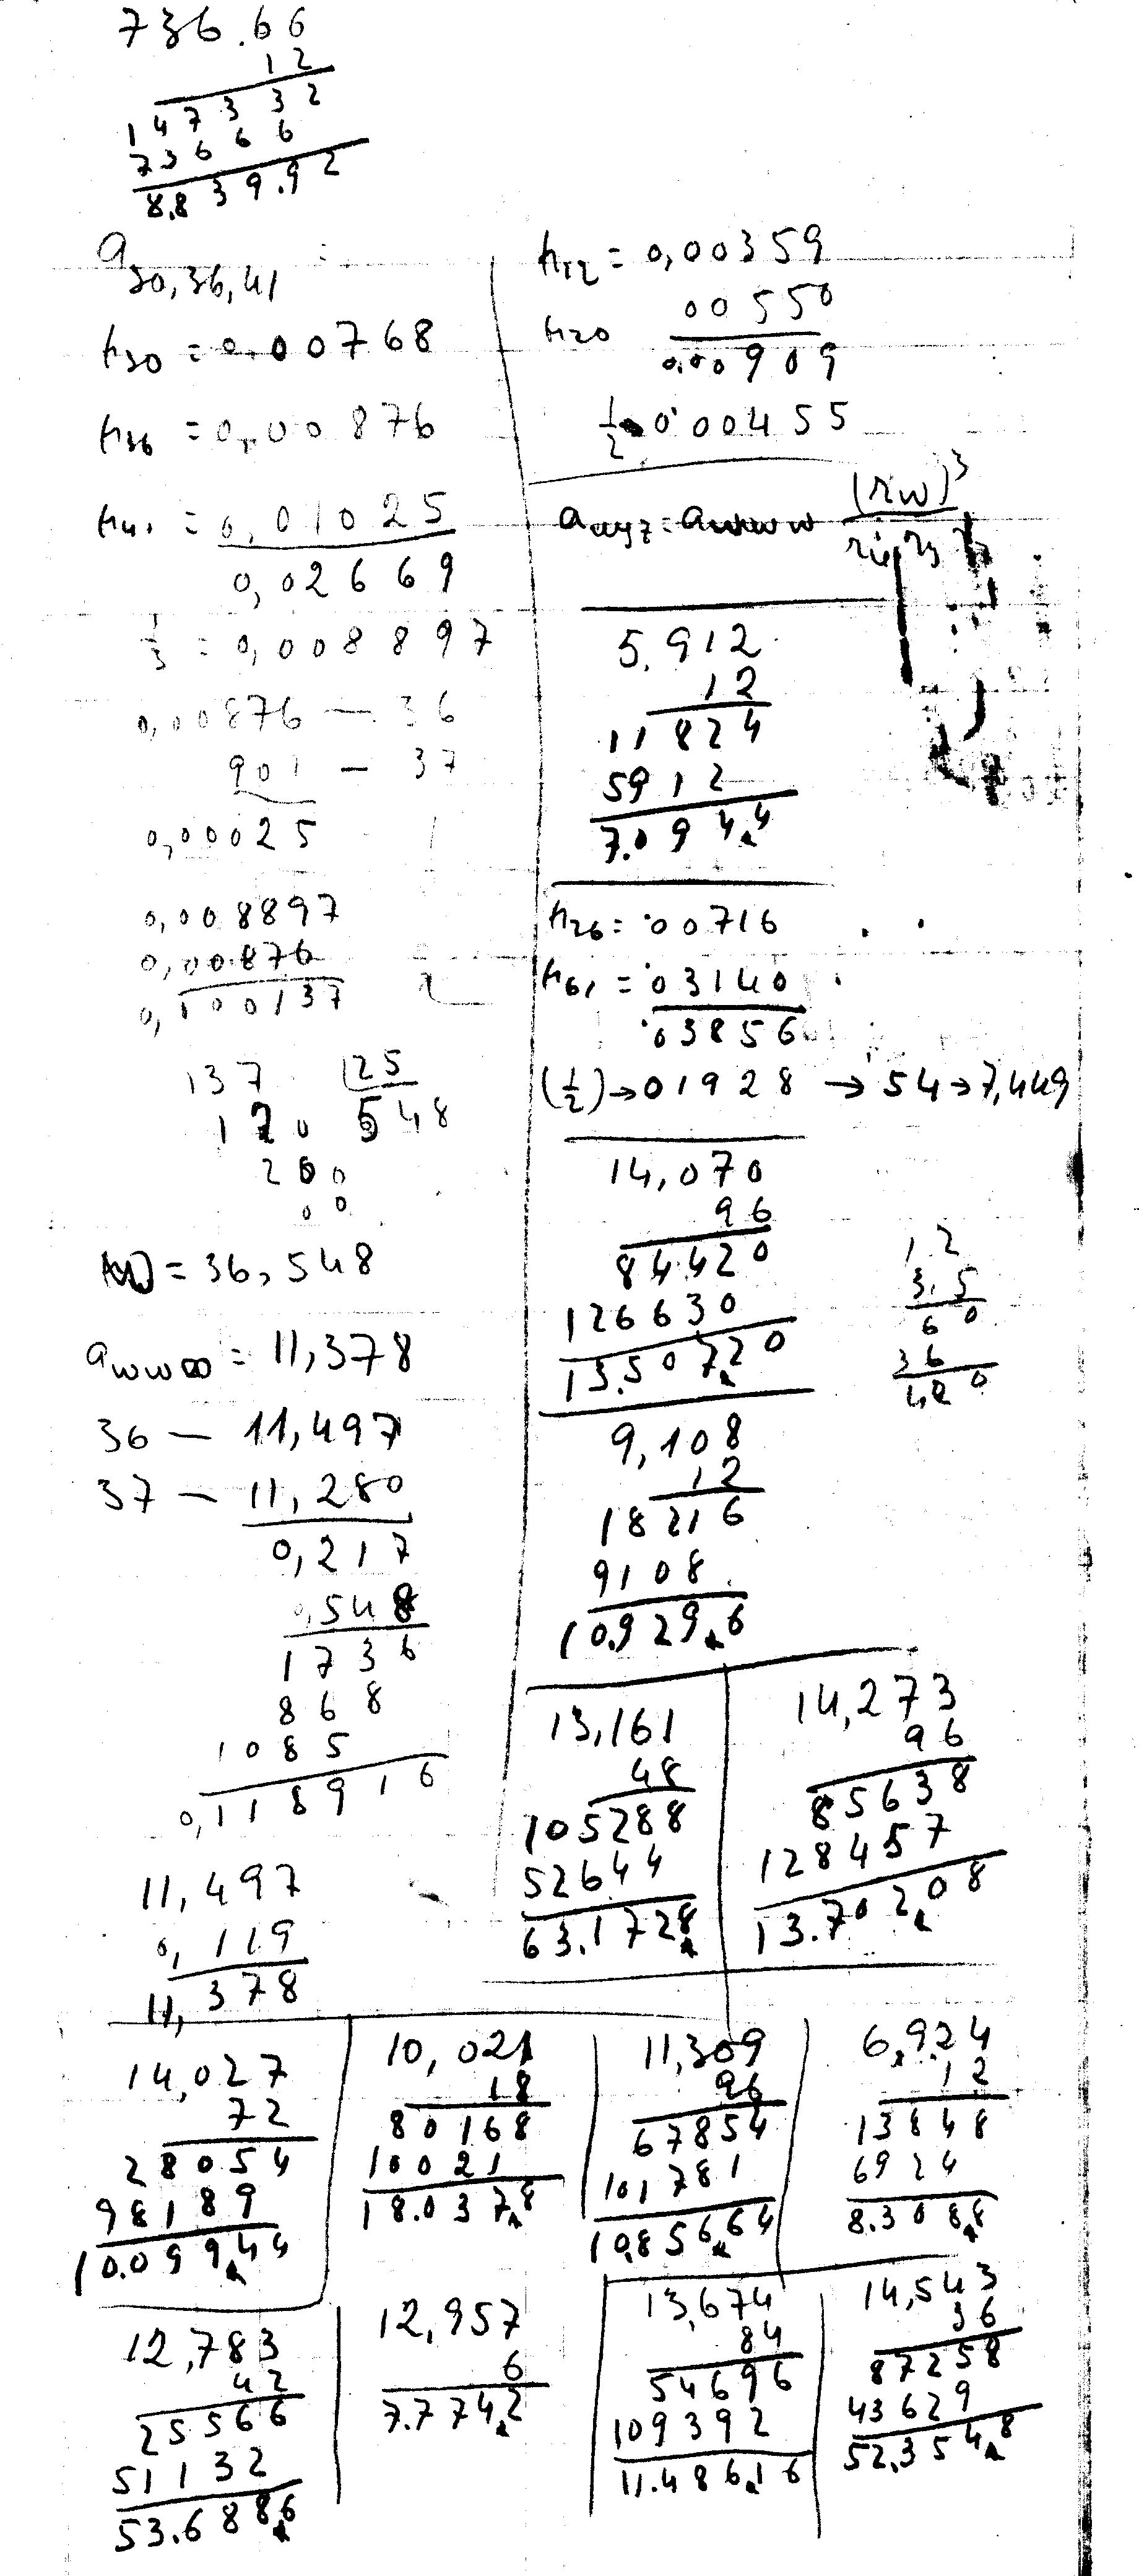 736.66
12
147332
73666
8.839.92
a30,36,41
h30 = 0.00768
h36 = 0,00876
h41 = 0,01025
0,02669
1/3 = 0,008897
0,00876 — 36
901 — 37
0,00025
0,008897
0,00876
0,000137
137 25
120 548
200
00
= 36,548
awww = 11,378
36 — 11,497
37 — 11,280
0,217
0,548
1736
868
1085
0,118916
11,497
0,119
11,378
h12 = 0,00359
h20 00550
0.00909
1/2 0.00455
axyz = awww (rw)3
5.912
12
11824
5912
7.094.4
h26 = .00716
h61 = .03140
.03856
(1/2) → 01928 → 54 → 7,449
14,070
96
84420
126630
13.507.20
1.2
3.5
60
36
4,20
9,108
12
18216
9108
10.929.6
13,161
48
105288
52644
63.1728
14,273
96
85638
128457
13.702.08
14,027
72
28054
98189
10.099.44
10,021
18
80168
10021
18.037.8
11,309
96
67854
101781
10.856.64
6.924
12
13848
6924
8.308.8
12,783
42
25566
51132
53.688.6
12,957
6
7.774.2
13,674
84
54696
109392
11.486.16
14,543
36
87258
43629
52.354.8